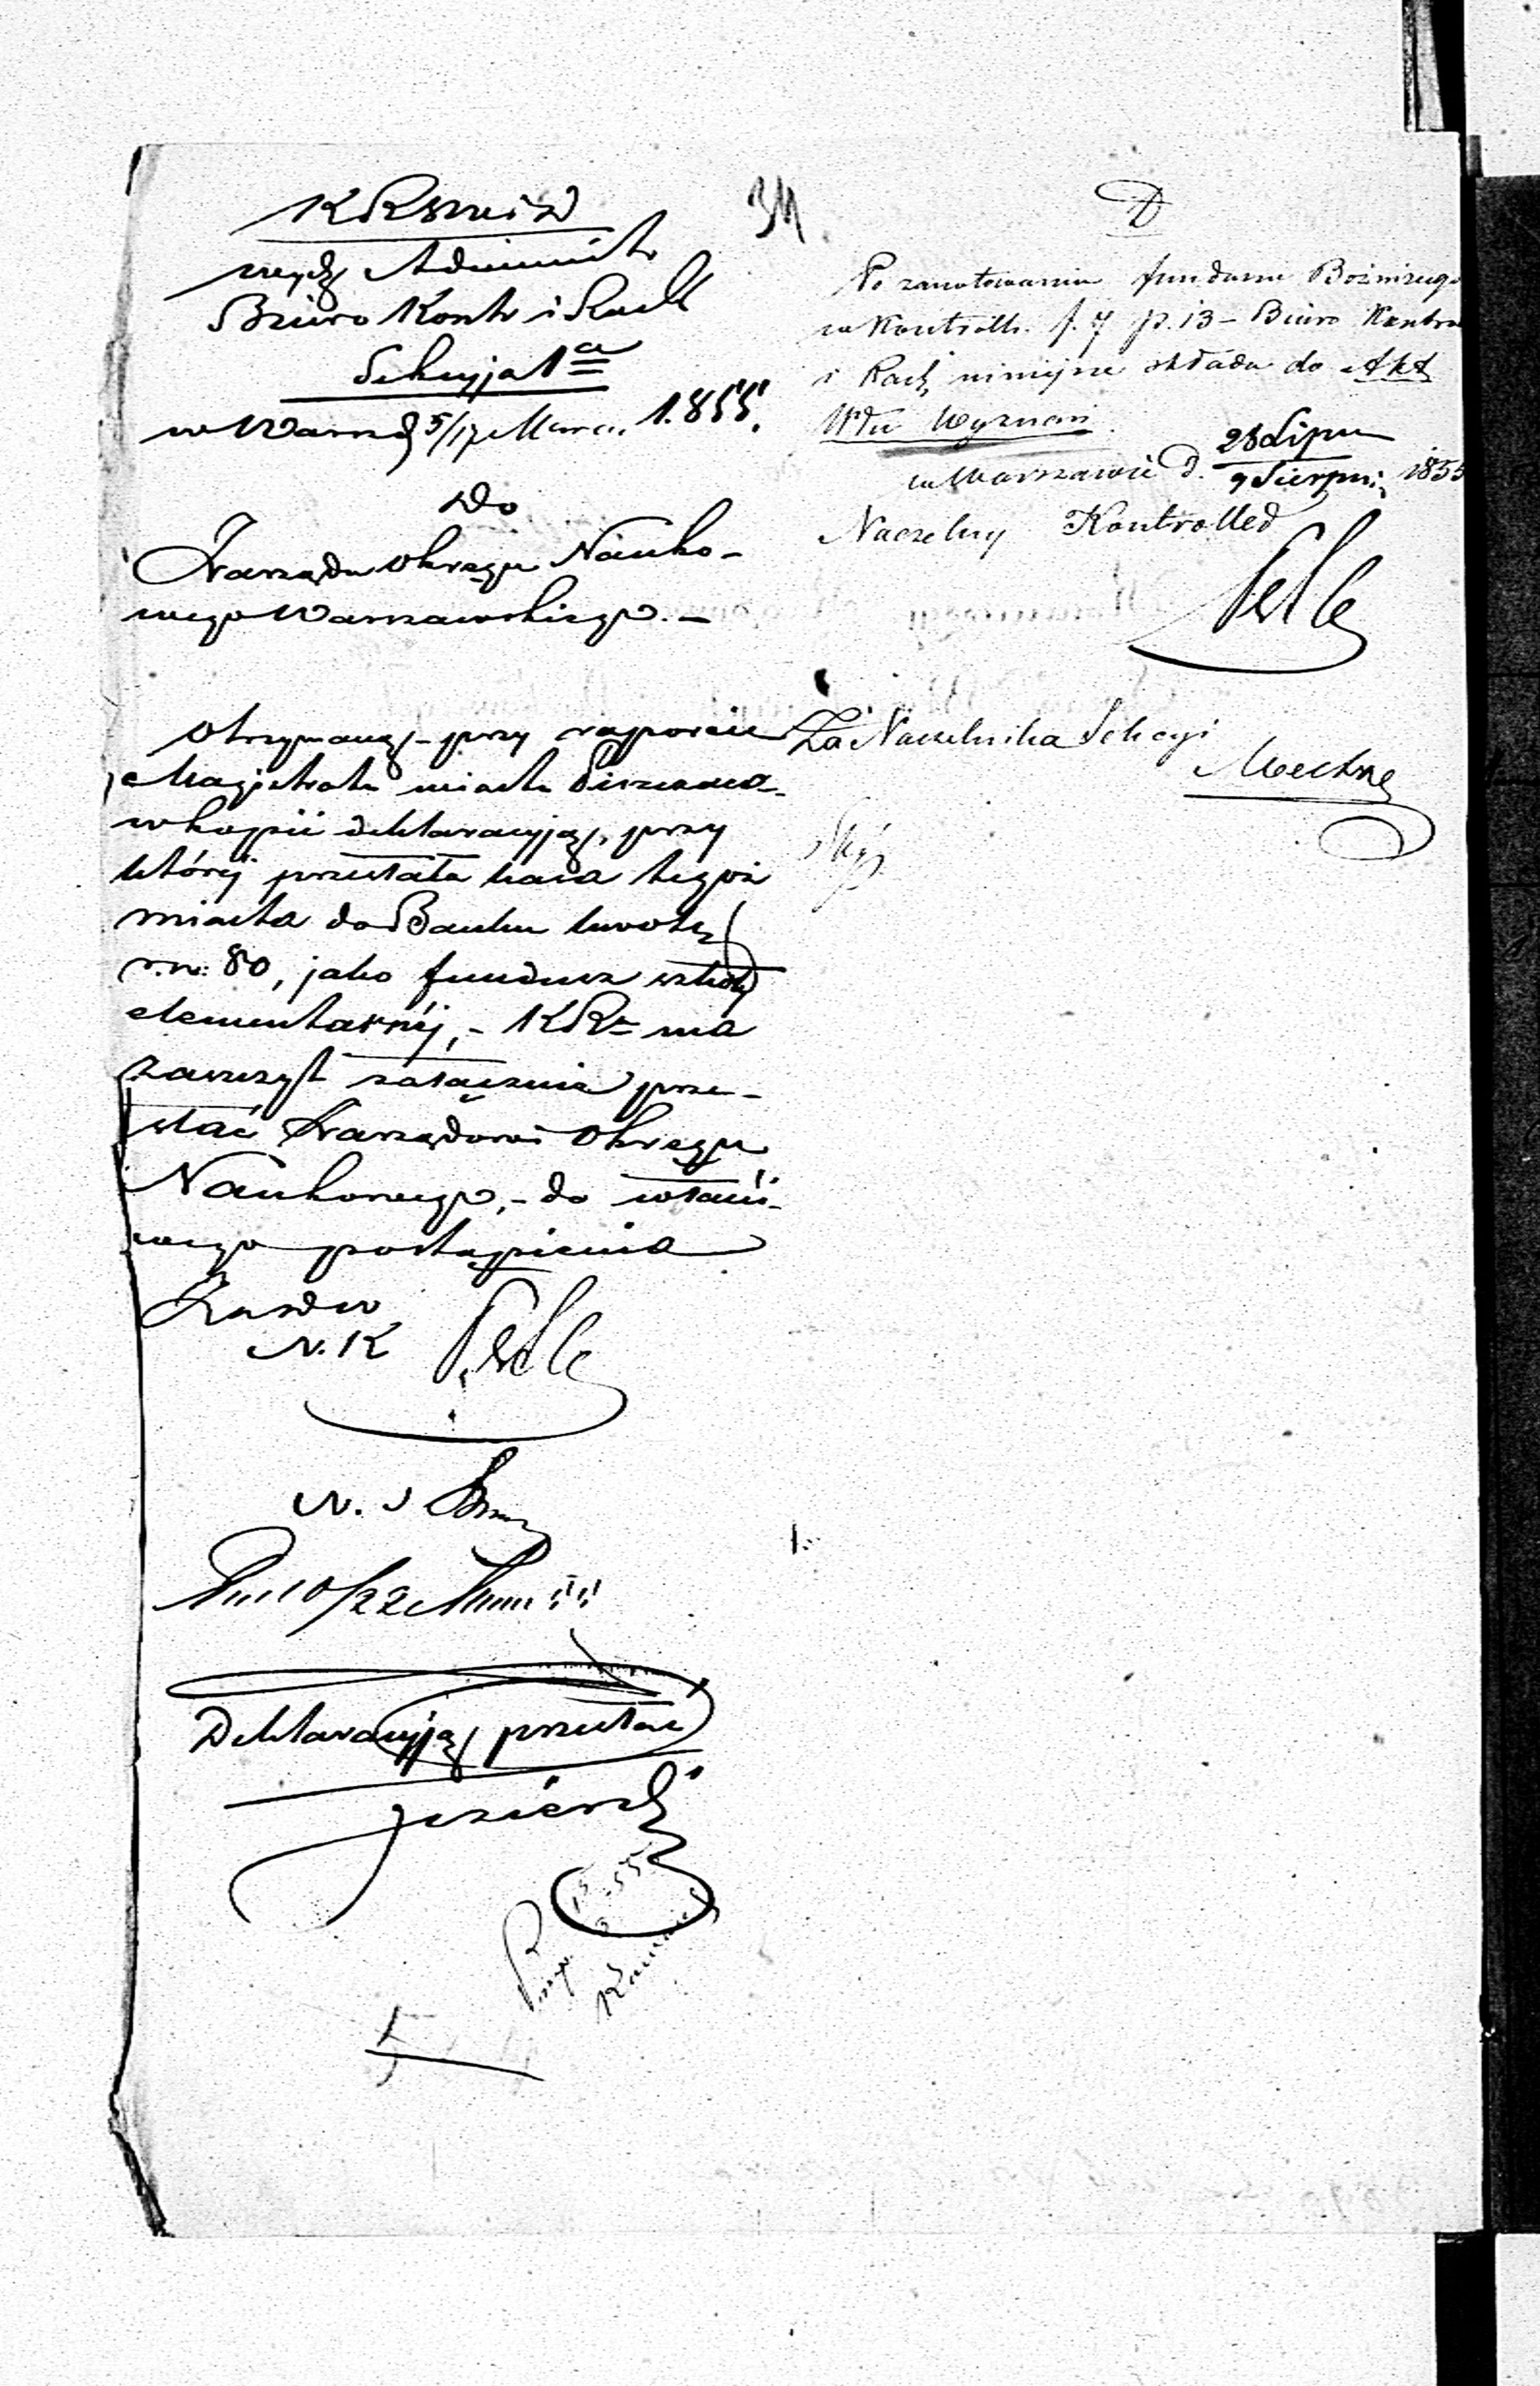 KRSWiD
Wydz Administr
Biuro Kontr i Rach
Sekcyja 1a
w Warsz d 5/17 Marca 1855.
Do
Zarządu Okręgu Nauko-
wego Warszawskiego.-
Otrzymaną - przy raporcie
Magistratu miasta
w kopii deklaracyją, przy
której przesłała kassa tegoż
miasta do Banku kwotę
r.s: 80, jako fundusz szkoły
elementarnéj, - KR= ma
zaszczyt załączenie prze-
słać Zarządowi Okręgu
Naukowego, - do właści-
wego postąpienia
N.K
N. S
10/22 55
Deklaracyją przesłać
Jezierski
34
D
Po zanotowaniu funduszu Bożniczego
w Kontrolli. f. 7 p. 13 - Biuro Kontro
i Rach niniejsze składa do Akt
Włu Wyznań
w Warszawie d. 28 Lipca / 9 Sierpnia 1855
Naczelny Kontroller
Za Naczelnika Sekcyi